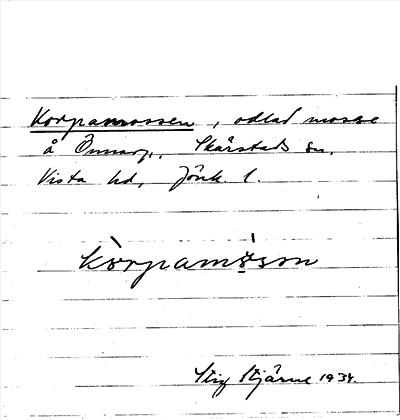 Korpamossen, odlad mosse
å Önnarp, Skärstads sn,
Vista hd, Jönk. l.
kòrpamo̤̍sən
Stig Stjärne 1934.